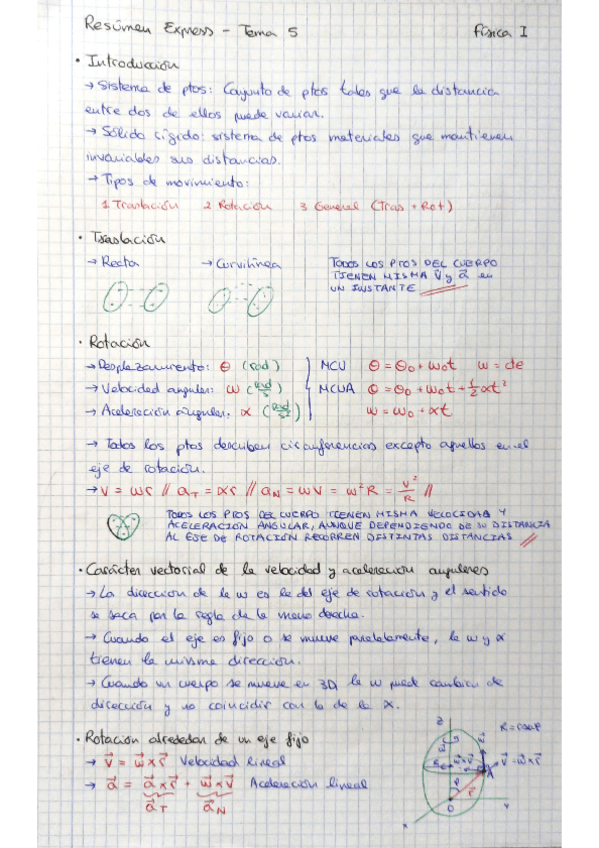 Resúmen Express - Tema 5 Física I
• Introducción
→ Sistema de ptos: Conjunto de ptos tales que la distancia
entre dos de ellos puede variar.
→ Sólido rígido: sistema de ptos materiales que mantienen
invariables sus distancias.
→ Tipos de movimiento:
1 Traslación 2 Rotación 3 General (Tras + Rot)
• Traslación
→ Recta → Curvilínea
TODOS LOS PTOS DEL CUERPO
TIENEN MISMA v⃗ y a⃗ en
UN INSTANTE
• Rotación
→ Desplazamiento: θ (rad) MCU θ = θ₀ + ω₀t ω = cte
→ Velocidad angular: ω (rad/s) MCUA θ = θ₀ + ω₀t + ½αt²
→ Aceleración angular: α (rad/s²) ω = ω₀ + αt
→ Todos los ptos describen circunferencias excepto aquellos en el
eje de rotación.
→ V = ωr // a_T = αr // a_N = ωV = ω²R = V²/R //
TODOS LOS PTOS DEL CUERPO TIENEN MISMA VELOCIDAD Y
ACELERACIÓN ANGULAR, AUNQUE DEPENDIENDO DE SU DISTANCIA
AL EJE DE ROTACIÓN RECORREN DISTINTAS DISTANCIAS
• Carácter vectorial de la velocidad y aceleración angulares
→ La dirección de la ω es la del eje de rotación y el sentido
se saca por la regla de la mano derecha.
→ Cuando el eje es fijo o se mueve paralelamente, la ω y α
tienen la misma dirección.
→ Cuando un cuerpo se mueve en 3D, la ω puede cambiar de
dirección y no coincidir con la de la α.
• Rotación alrededor de un eje fijo
→ v⃗ = ω⃗ × r⃗ Velocidad lineal
→ a⃗ = α⃗ × r⃗ + ω⃗ × v⃗ Aceleración lineal
a⃗_T a⃗_N
z
v⃗ = ω⃗ × r⃗
A
O
Y
X